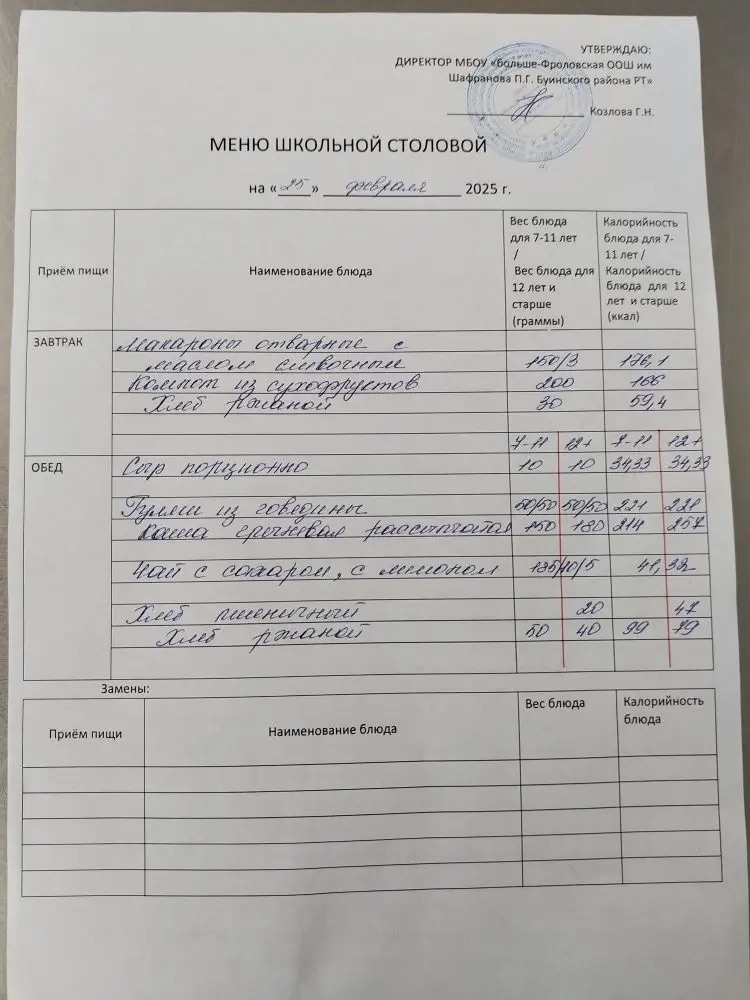 УТВЕРЖДАЮ:
ДИРЕКТОР МБОУ «Больше-Фроловская ООШ им
Шафранова П.Г. Буинского района РТ»
Козлова Г.Н.
МЕНЮ ШКОЛЬНОЙ СТОЛОВОЙ
на «25» февраля 2025 г.
Приём пищи
Наименование блюда
Вес блюда
для 7-11 лет
/
Вес блюда для
12 лет и
старше
(граммы)
Калорийность
блюда для 7-
11 лет /
Калорийность
блюда для 12
лет и старше
(ккал)
ЗАВТРАК Макароны отварные с
маслом сливочным 150/3 176,1
Компот из сухофруктов 200 166
Хлеб ржаной 30 59,4
7-11 12+ 7-11 12+
ОБЕД Сыр порционно 10 10 34,33 34,33
Гуляш из говядины 50/50 50/50 221 221
Каша гречневая рассыпчатая 150 180 214 257
Чай с сахаром, с лимоном 185/10/5 41,32
Хлеб пшеничный 20 47
Хлеб ржаной 50 40 99 79
Замены:
Приём пищи Наименование блюда Вес блюда Калорийность
блюда